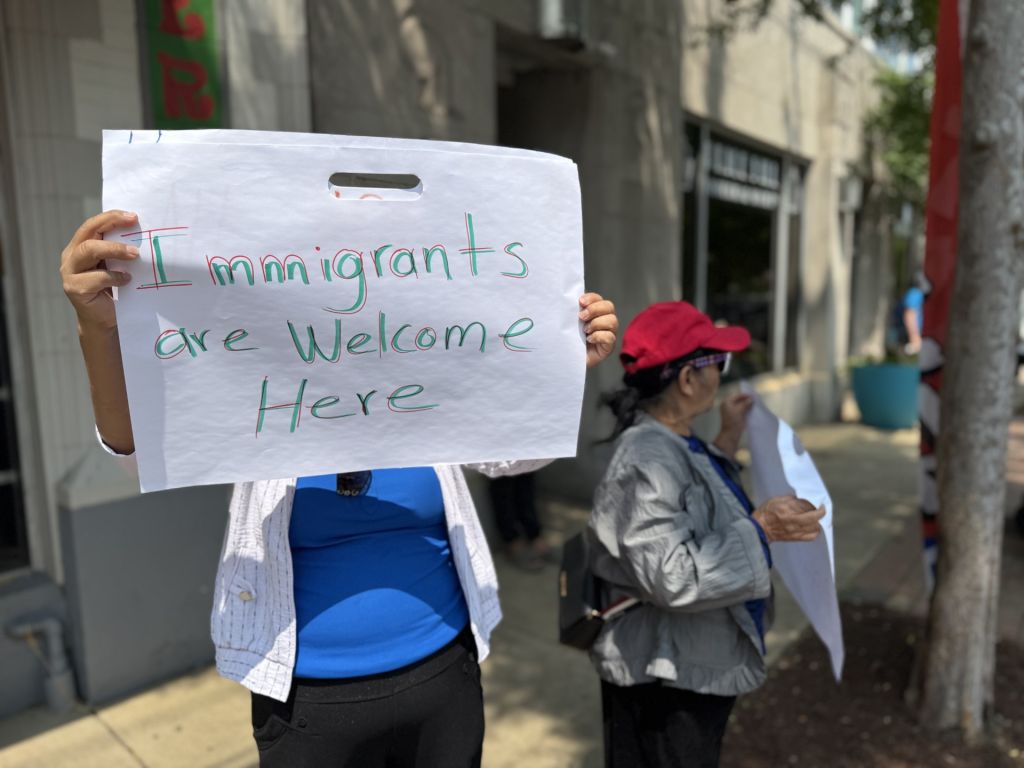 ER
Immigrants
are Welcome
Here